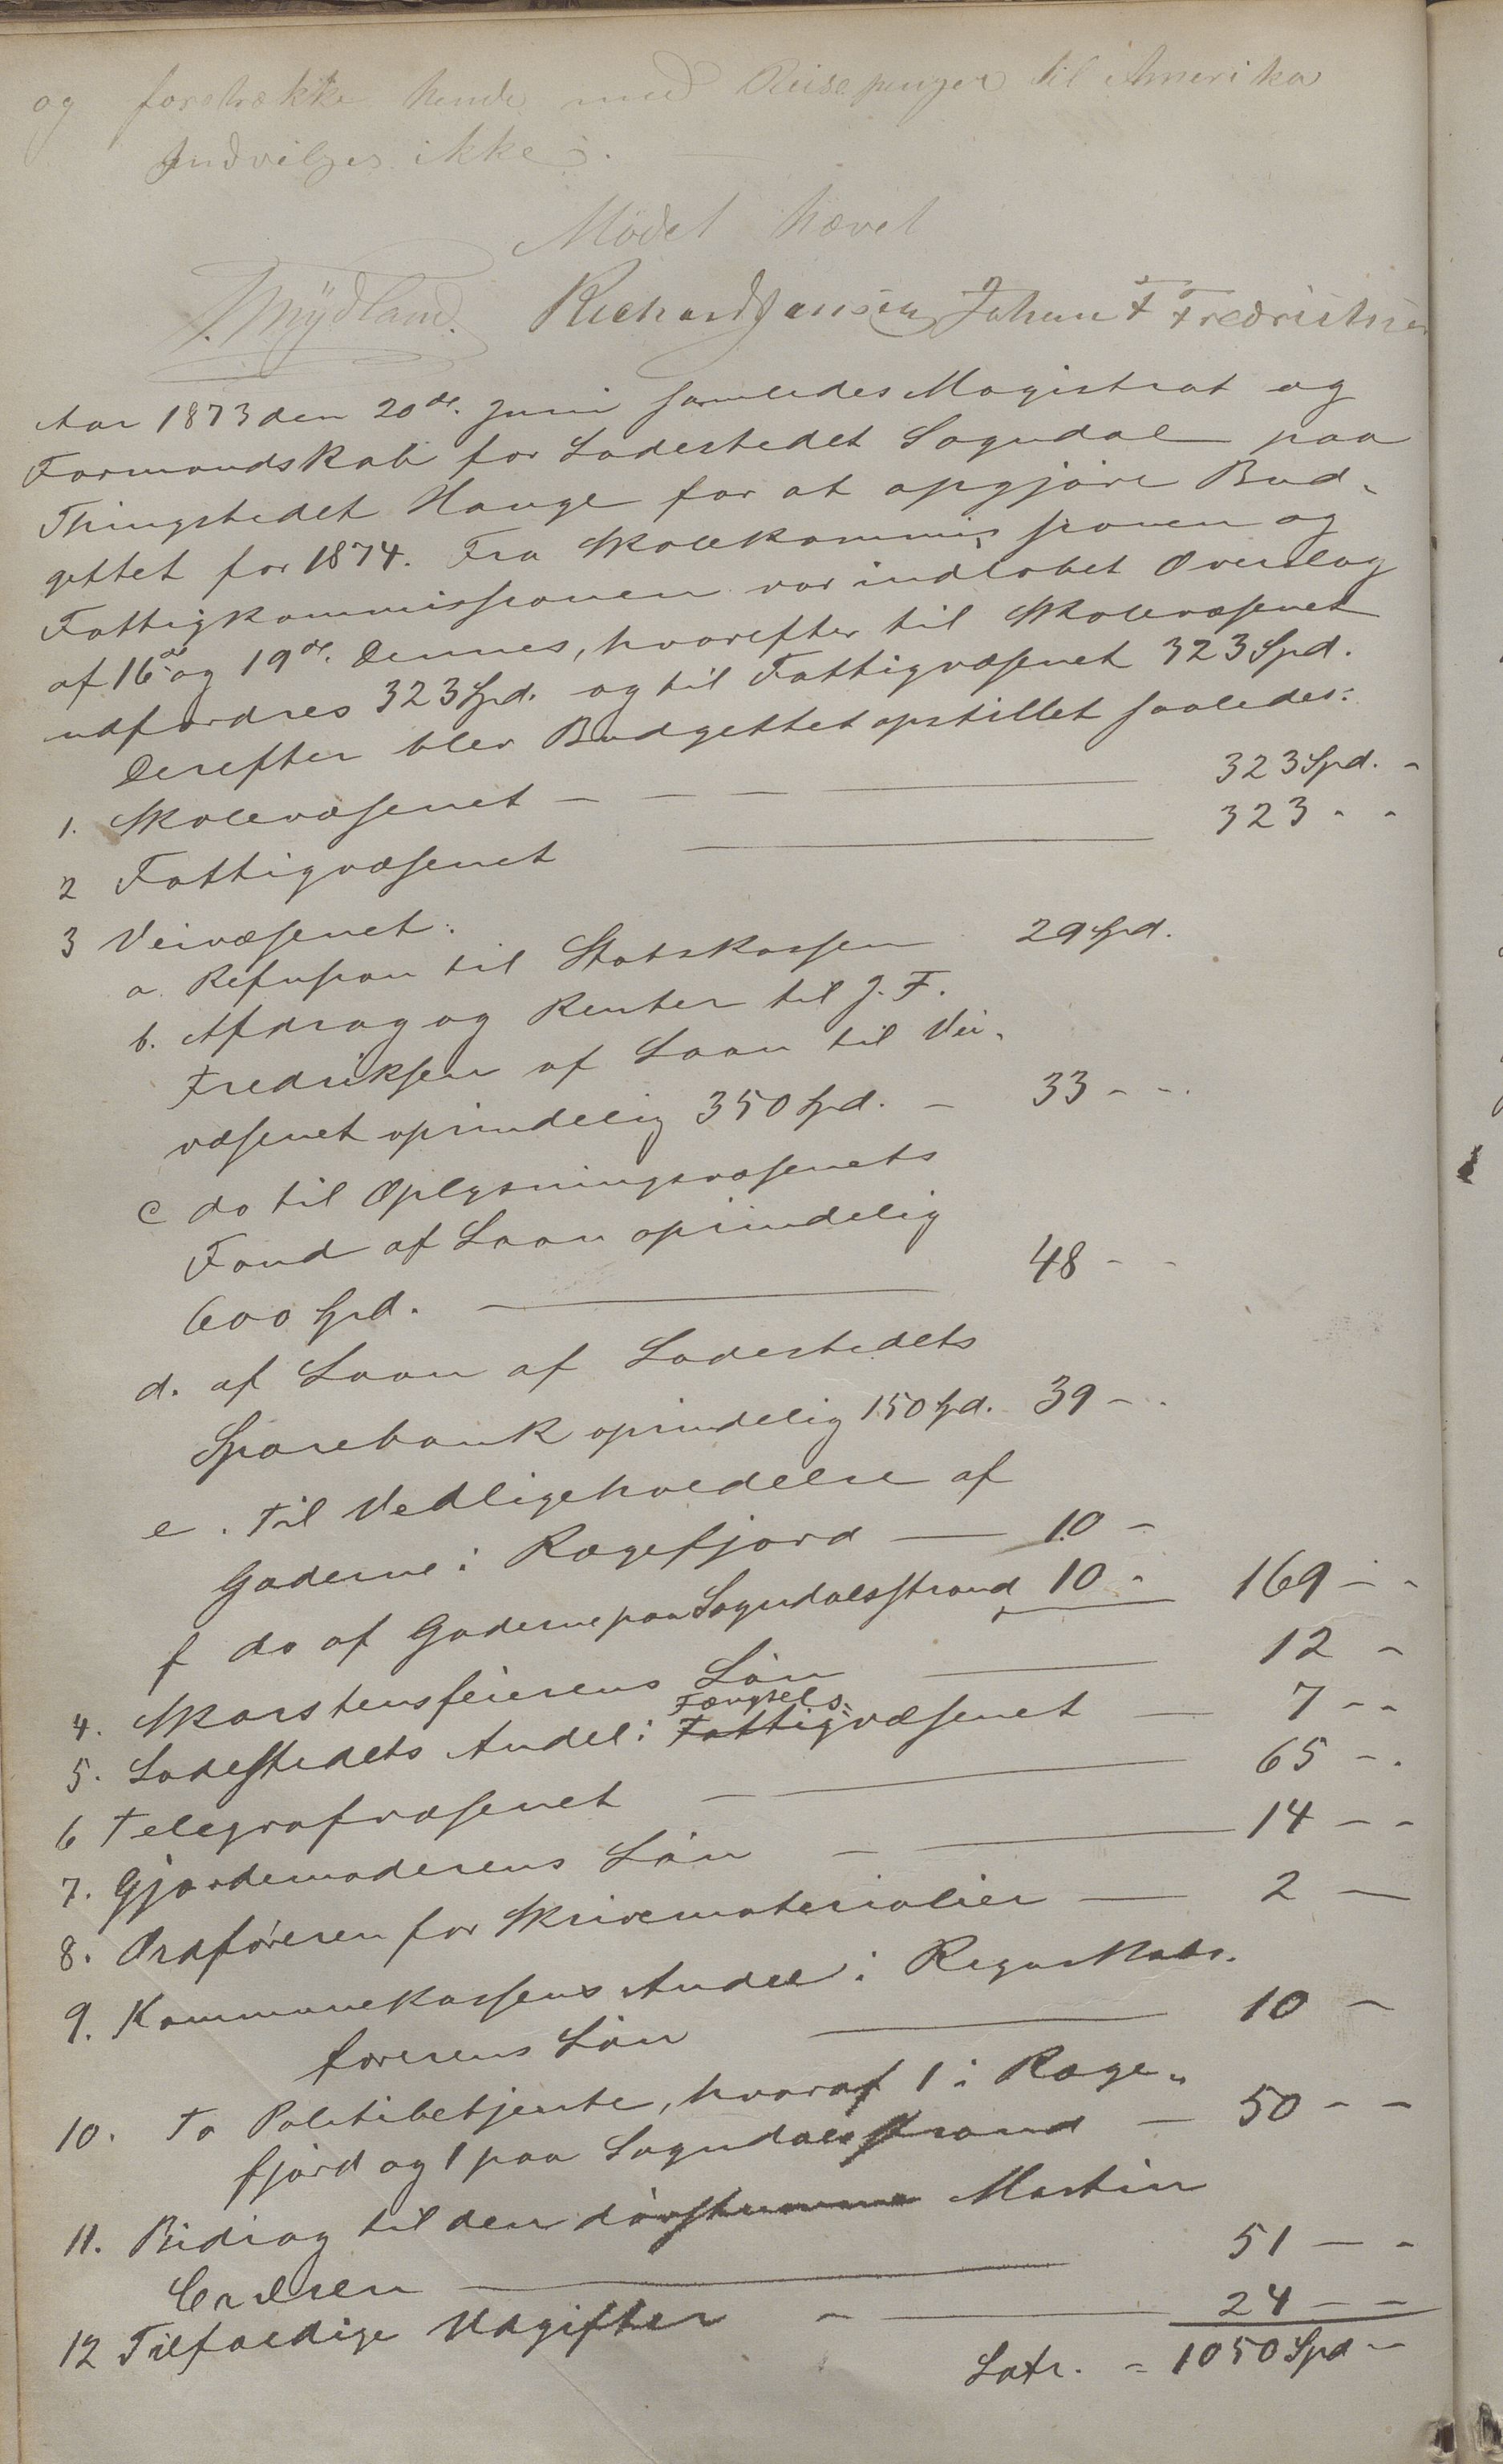 og forstrække hende med Reisepenger til Amerika
Indvilges ikke.
Mödet hævet
T. Mydland. Richard Jansen Johan F Fredriksen
Aar 1873 den 20de. Juni samledes Magistrat og
Formandskab for Ladestedet Sogndal paa
Thingstedet Hauge for at opgjøre Bud-
gettet for 1874. Fra Skolekommissionen og
Fattigkommissionen var indløbet Overslag
af 16de og 19de. dennes, hvorefter til Skolevæsenet
udfordres 323 Spd. og til Fattigvæsenet 323 Spd.
Derefter blev Budgettet opstillet saaledes:
1. Skolevæsenet - - - 323 Spd. -
2 Fattigvæsenet 323 - -
3 Veivæsenet:
a. Refusion til Statskassen 29 Spd.
b. Afdrag og Renter til J. F.
Fredriksen af Laan til Vei-
væsenet oprindelig 350 Spd. - 33 - -
c do til Oplysningsvæsenets
Fond af Laan oprindelig
600 Spd. 48 - -
d. af Laan af Ladestedets
Sparebank oprindelig 150 Spd. 39 - -
e. Til Vedligeholdelse af
Gaderne i Rægefjord 10 -
f do af Gaderne paa Sogndalsstrand 10 - 169 - -
4. Skorstensfeierens Løn 12 -
5. Ladestedets Andel i Fattig Fængsels-væsenet 7 - -
6 Telegrafvæsenet - 65 - -
7. Gjordemoderens Løn - 14 - -
8. Ordføreren for Skrivematerialier 2 -
9. Kommunekassens Andel i Regnskabs-
førerens Løn 10 -
10. To Politibetjente, hvoraf 1 i Ræge-
fjord og 1 paa Sogndalsstrand - 50 - -
11. Bidrag til den døvstumme Martin
51 - -
12 Tilfældige Udgifter - 24 - -
Latr. - 1050 Spd -